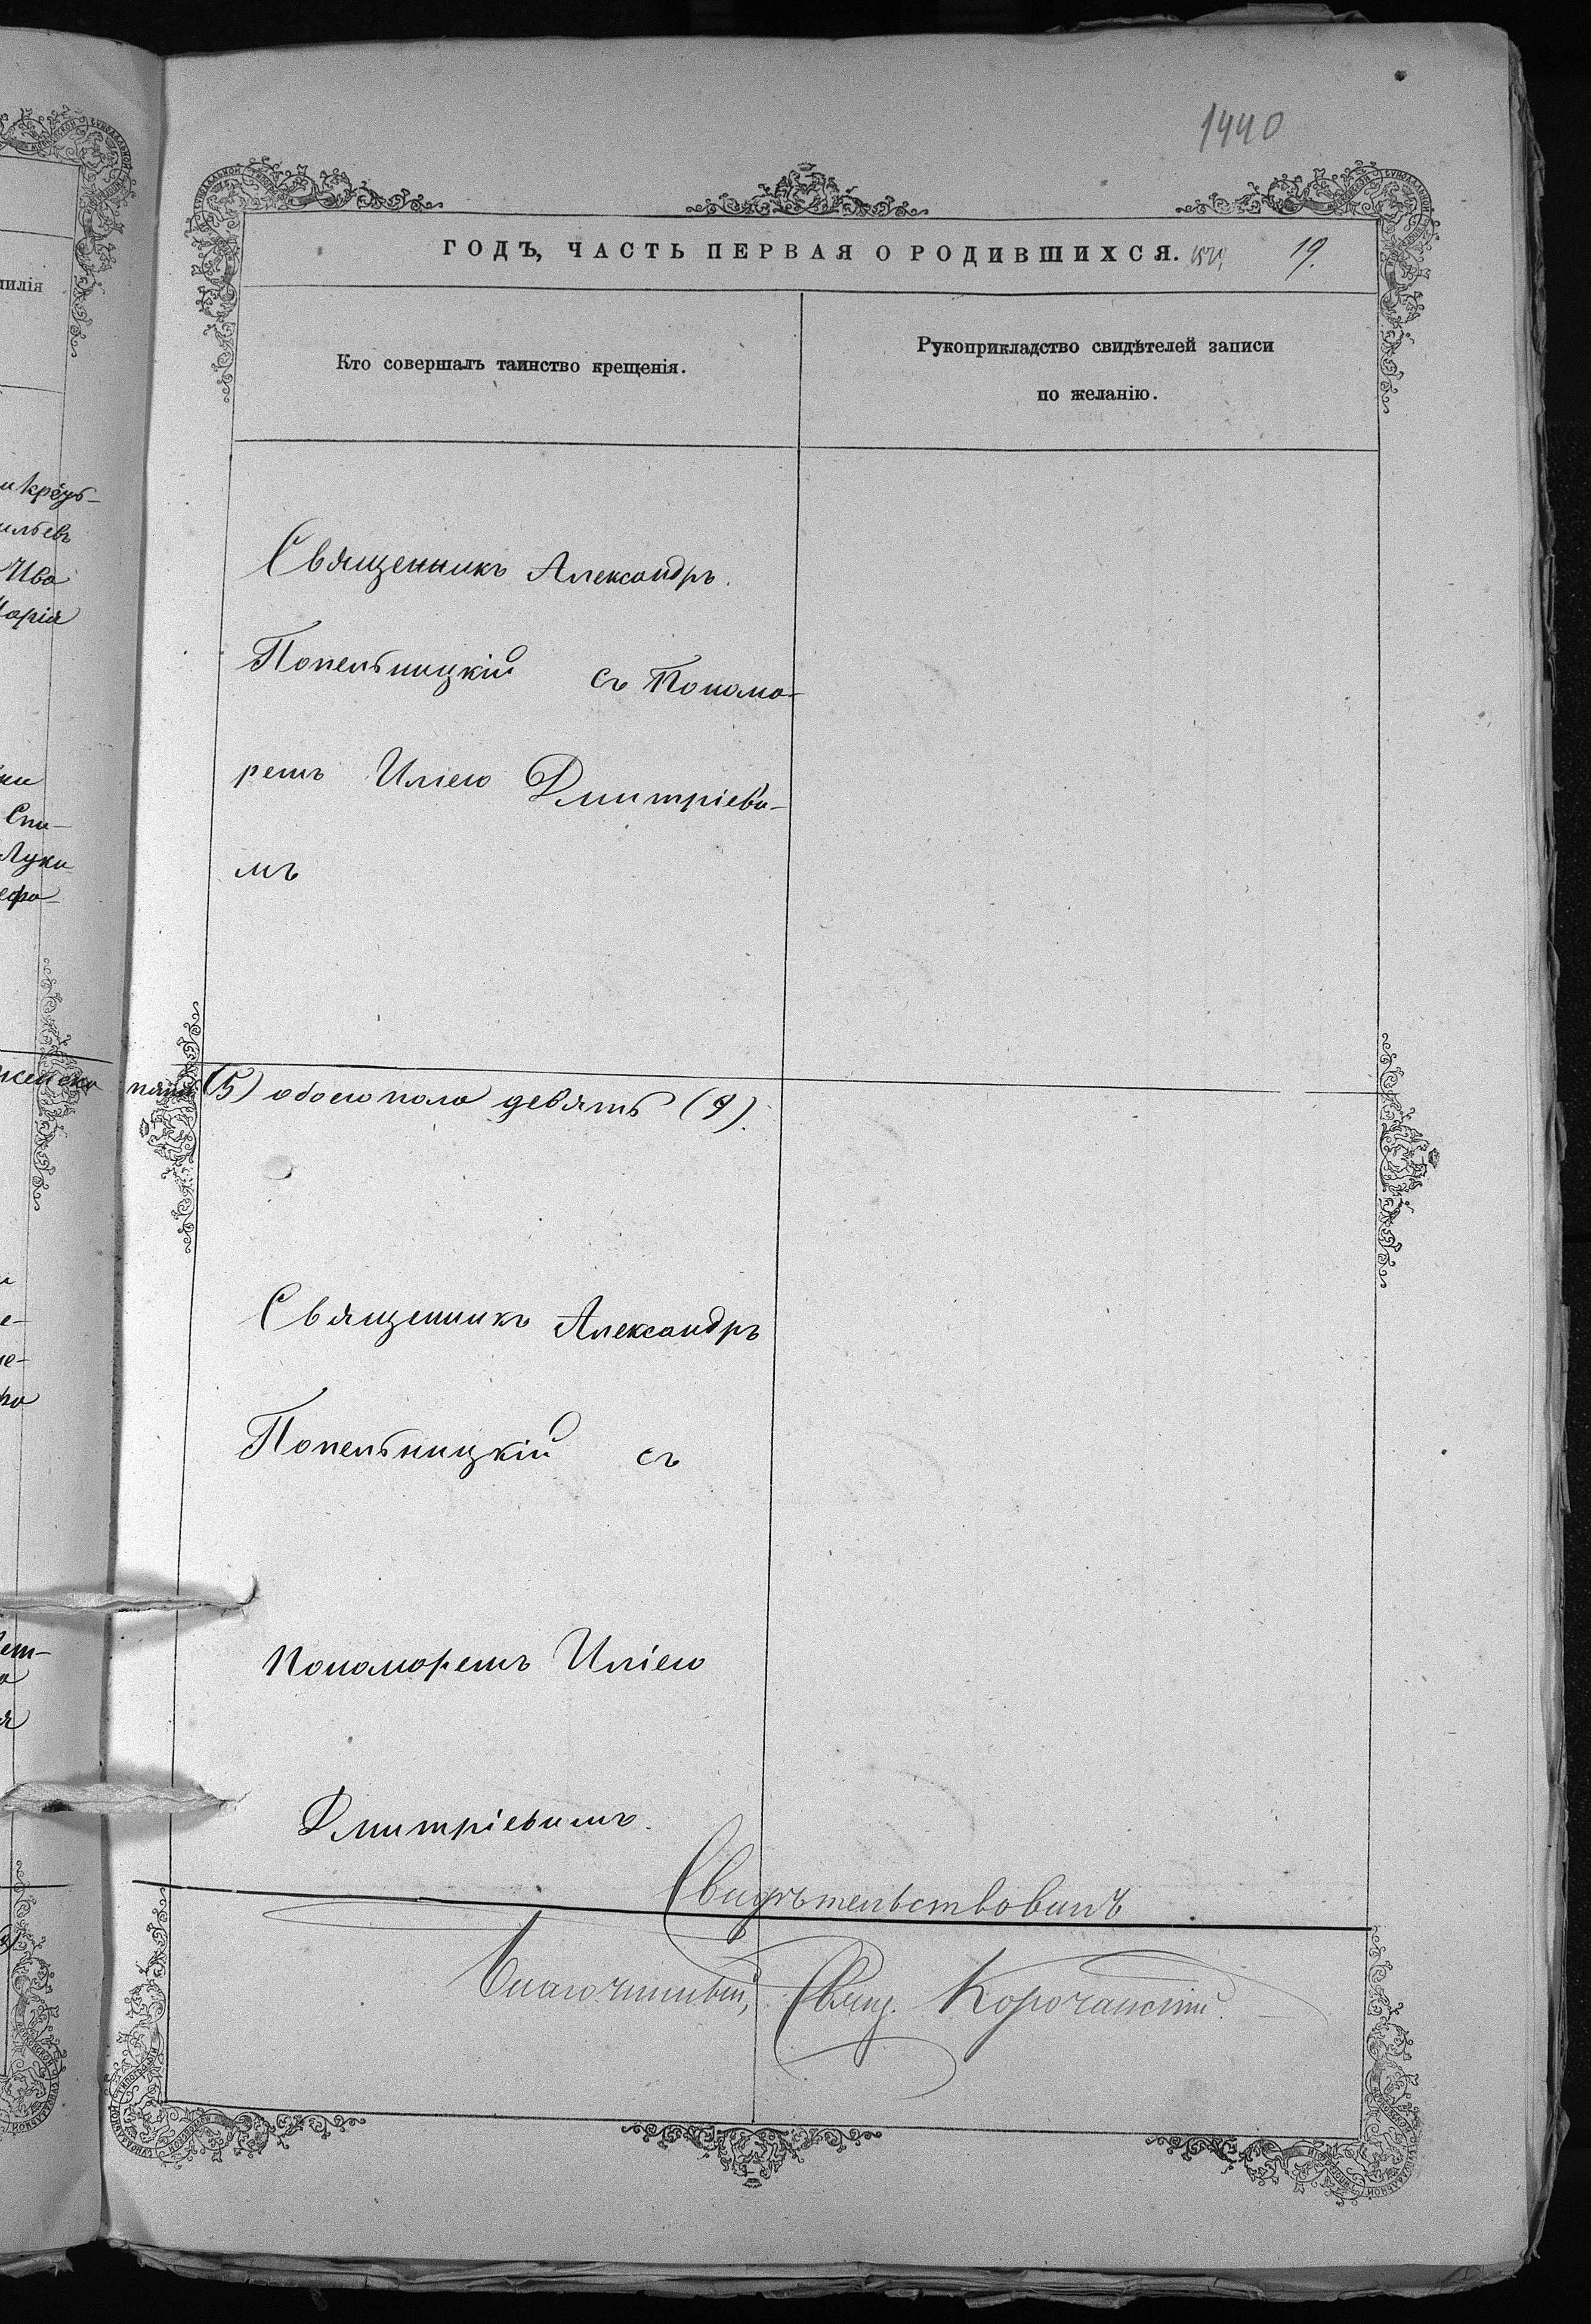 1440
ГОДЪ, ЧАСТЬ ПЕРВАЯ О РОДИВШИХСЯ. 19.
Кто совершалъ таинство крещенія.
Рукоприкладство свидѣтелей записи
по желанію.
Священникъ Александръ.
Попельницкій съ Понома-
ремъ Иліею Дмитріевы-
мъ
пять (5) обоего пола девять (9).
Священникъ Александръ
Попельницкій съ
Пономоремъ Иліею
Дмитріевымъ.
Свидѣтельствовалъ
Благочинный, Свящ. Корочанскій.
милія
Ива
Марія
Спи-
Луки
женска